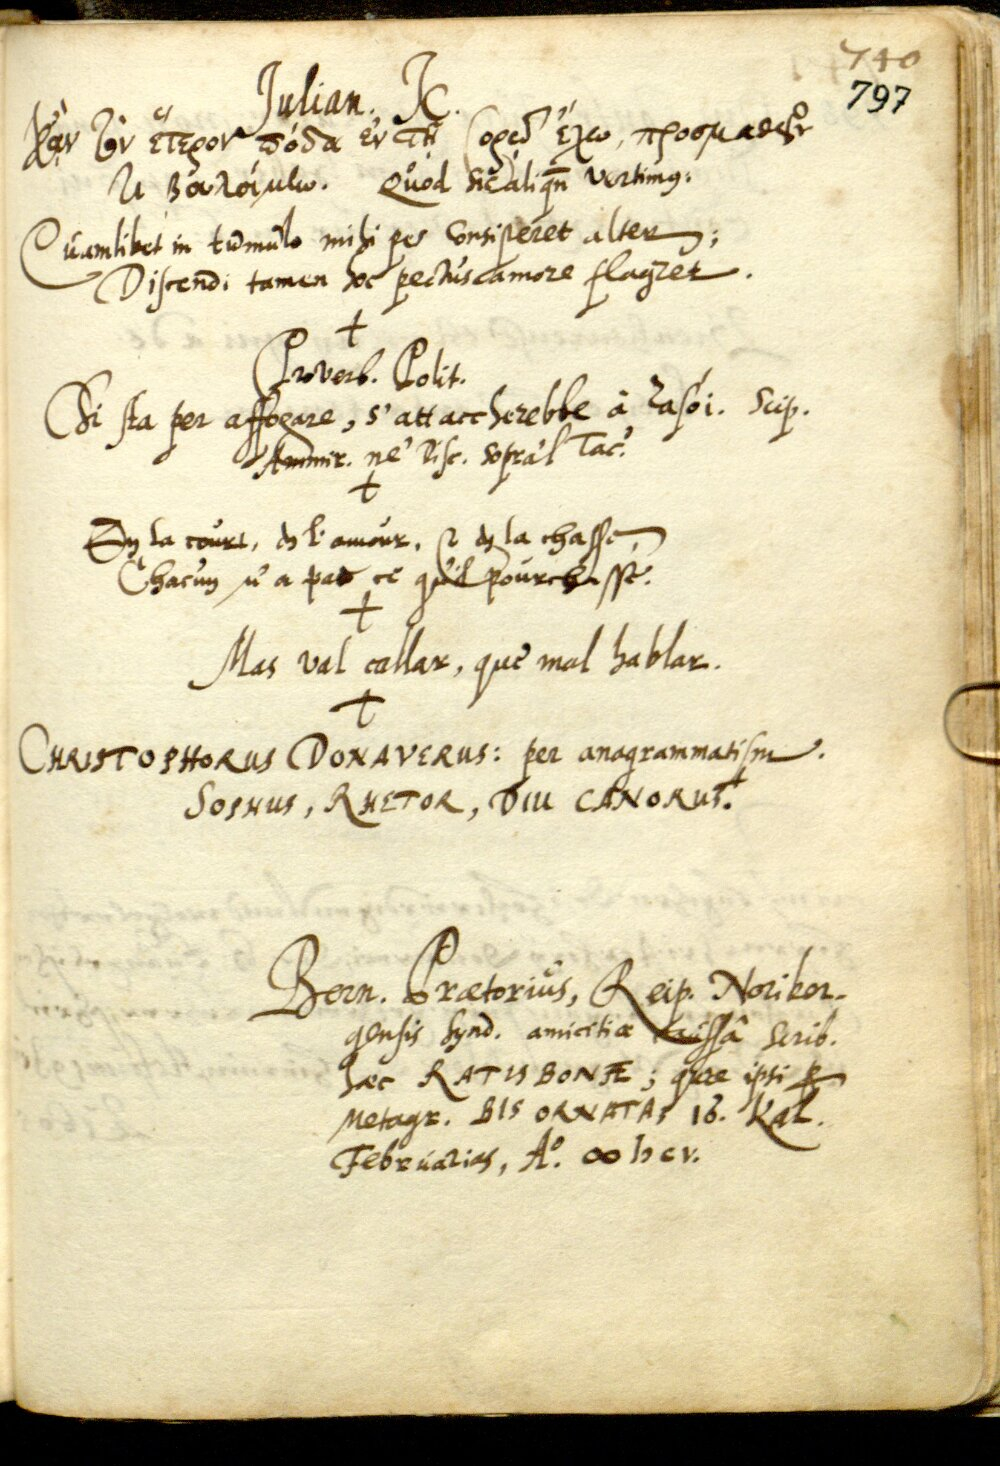 740
797
Julian. JC.
Κᾂν τὸν ἕτερον πόδα ἐν τῇ σορῷ ἔχω, προσμαθεῖν
τι βουλοίμην. Quod sic aliqñ vertimꝰ:
Quamlibet in tumulo mihi pes consisteret alter;
Discendi tamen hoc pectus amore flagret.
+
Proverb. Polit.
Chi sta per affogare, s'attaccherebbe à rasoi. Scip.
Ammir. ne' Disc. sopra'l Tac.
+
En la court, en l'amour, & en la chasse,
Chacun n'a pas ce qu'il pourchasse.
+
Mas val callar, que mal hablar.
+
CHRISTOPHORUS DONAVERUS: per anagrammatism.
SOPHUS, RHETOR, DIU CANORUS.
Bern. Prætorius, Reip. Noriber-
gensis Synd. amicitiæ caussâ scrib.
hæc RATISBONÆ; quæ ipsi p
Metagr. BIS ORNATAS 16. Kal.
Februarias, Aº. ∞ I) cv.